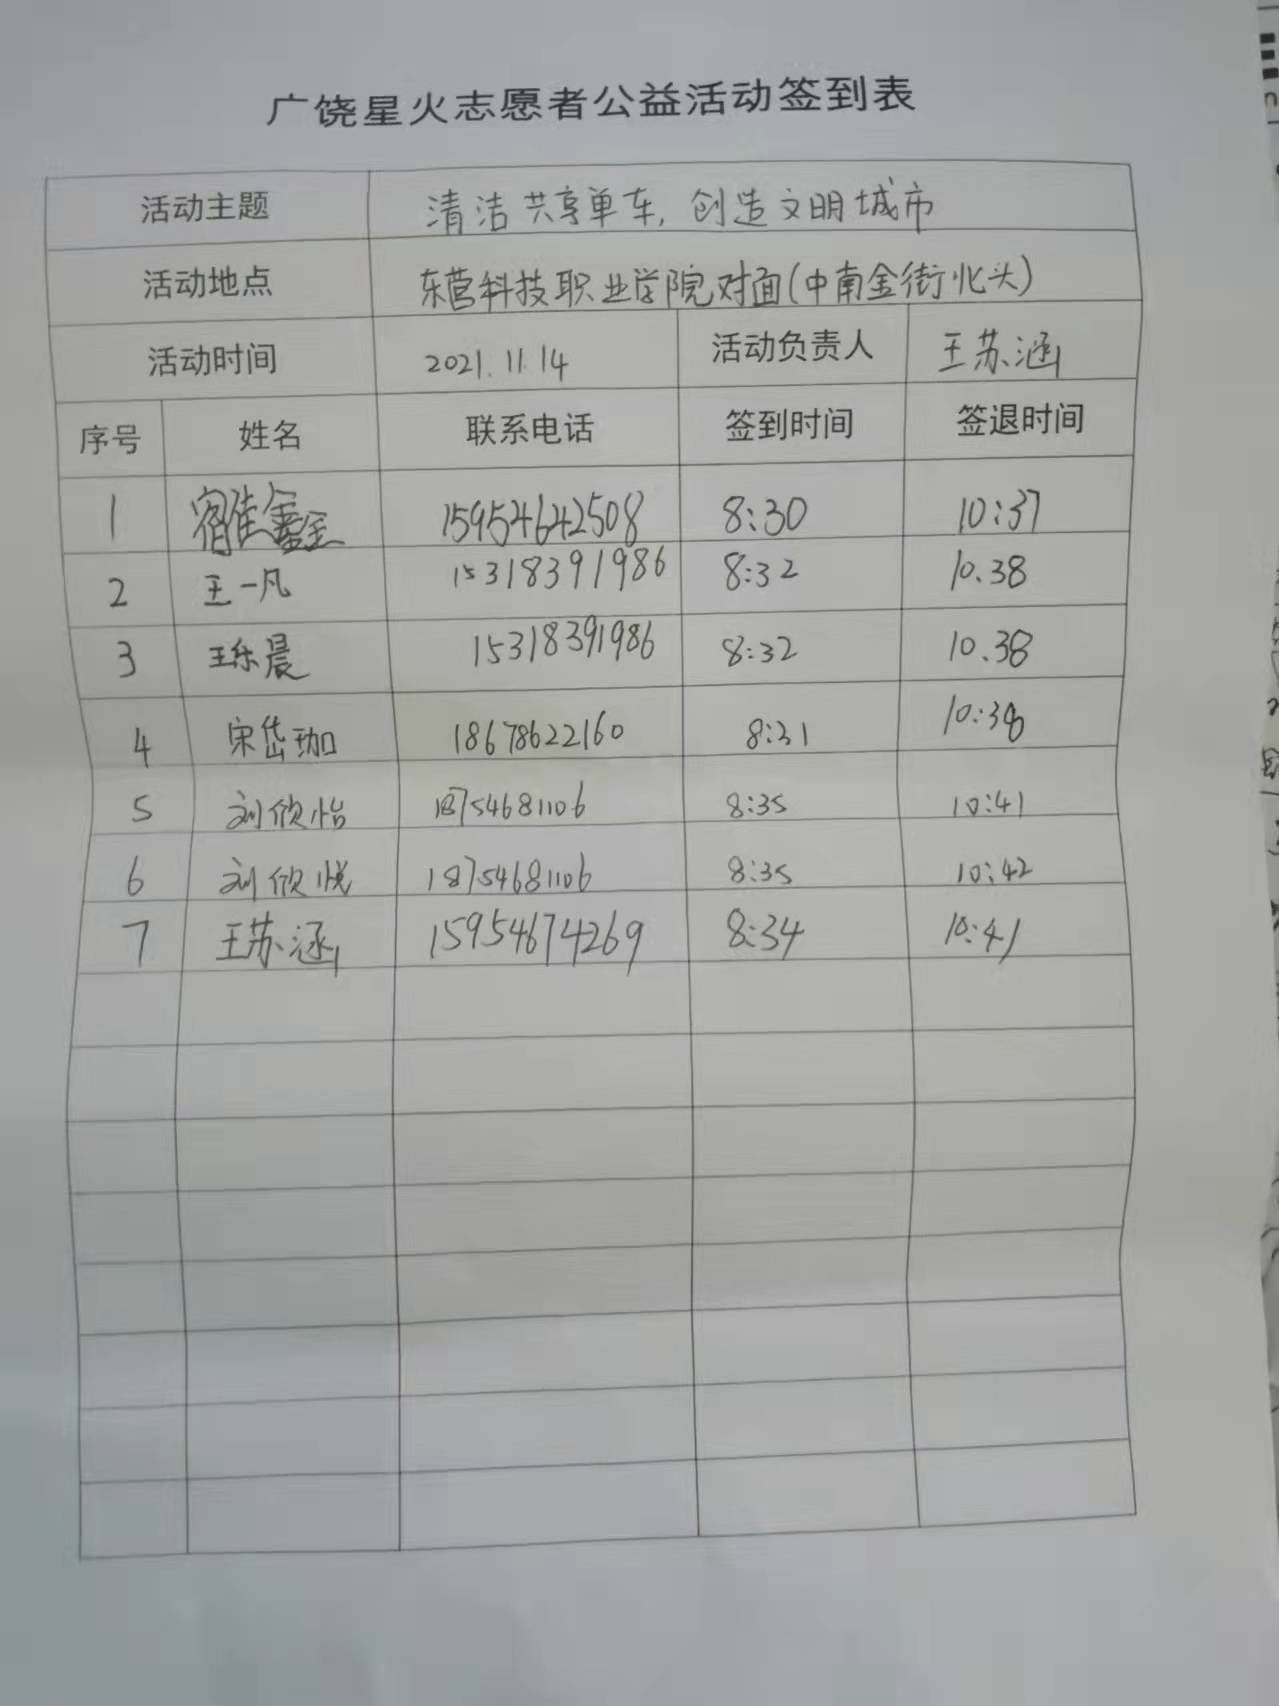 广饶星火志愿者公益活动签到表
活动主题 清洁共享单车,创造文明城市
活动地点 东营科技职业学院对面(中南金街北头)
活动时间 2021.11.14 活动负责人 王苏涵
序号 姓名 联系电话 签到时间 签退时间
1 宿佳鑫 15954642508 8:30 10:37
2 王一凡 15318391986 8:32 10.38
3 王乐晨 15318391986 8:32 10.38
4 宋岱珈 18678622160 8:31 10:38
5 刘欣怡 18754681106 8:35 10:41
6 刘欣悦 18754681106 8:35 10:42
7 王苏涵 15954674269 8:34 10:41